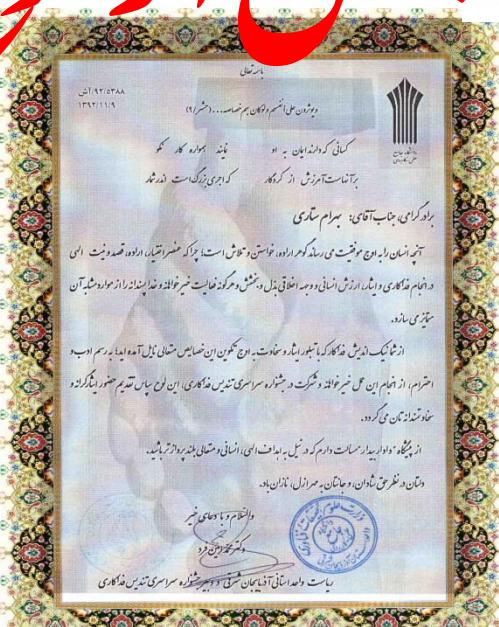 باسمه تعالی
۹۲/۵۳۸۸/آش
۱۳۹۲/۱۱/۹
ویوثرون علی انفسهم ولوکان بهم خصاصه... (حشر/۹)
کسانی که دارند ایمان به او نمایند همواره کار نکو
برآنهاست آمرزش از کردگار که اجری بزرگ است اندر شمار
برادر گرامی، جناب آقای: بهرام ستاری
آنچه انسان را به اوج موفقیت می رساند گوهر اراده، خواستن و تلاش است؛ چرا که عنصر اختیار، اراده، قصد و نیت الهی
در انجام فداکاری و ایثار، ارزش انسانی و وجهه اخلاقی بذل و بخشش و هرگونه فعالیت خیرخواهانه و خداپسندانه را از موارد مشابه آن
متمایز می سازد.
از شما نیک اندیش فداکار که با تبلور ایثار و سخاوت به اوج تکوین این خصایص متعالی نایل آمده اید؛ به رسم ادب و
احترام، از انجام این عمل خیرخواهانه و شرکت در جشنواره سراسری تندیس فداکاری، این لوح سپاس تقدیم حضور ایثارگرانه و
سخاوتمندانه تان می گردد.
از پیشگاه دادار بیدار مسالت دارم که در نیل به اهداف الهی، انسانی و متعالی بلند پروازتر باشید.
دلتان در نظر حق شادان، و جانتان به مهر ازل، نازان باد.
والسلام و با دعای خیر
ریاست واحد استانی آذربایجان شرقی و دبیر جشنواره سراسری تندیس فداکاری